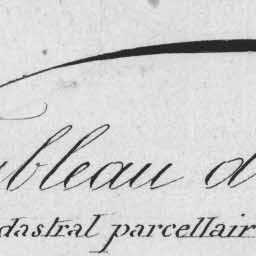 ableau d
dastral parcellair